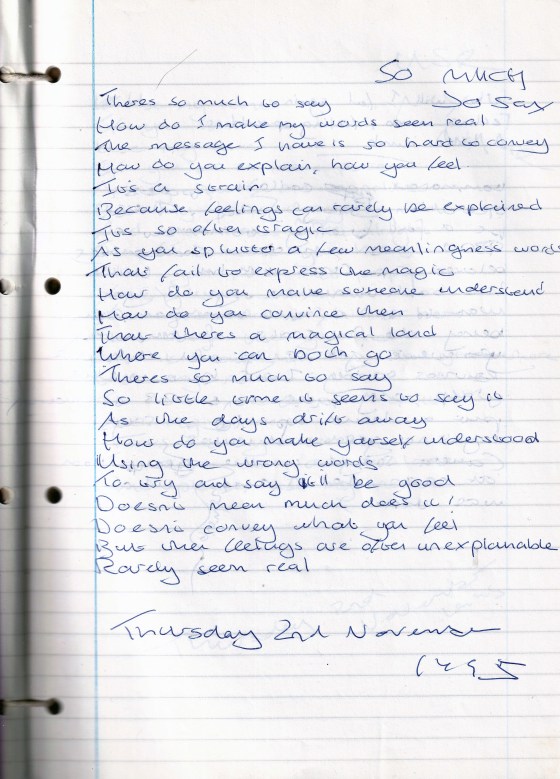 So much
To Say
Theres so much to say
How do I make my words seen real
The message I have is so hard to convey
How do you explain, how you feel
It's a strain
Because feelings can rarely be explained
It's so often tragic
As you splutter a few meaningness words
That fail to express the magic
How do you make someone understand
How do you convince them
That there's a magical land
Where you can both go
Theres so much to say
So little time it seems to say it
As the days drift away
How do you make yourself understood
Using the wrong words
To try and say it'll be good
Doesn't mean much does it!
Doesn't convey what you feel
But then feelings are often unexplainable
Rarely seen real
Thursday 2nd November
1995